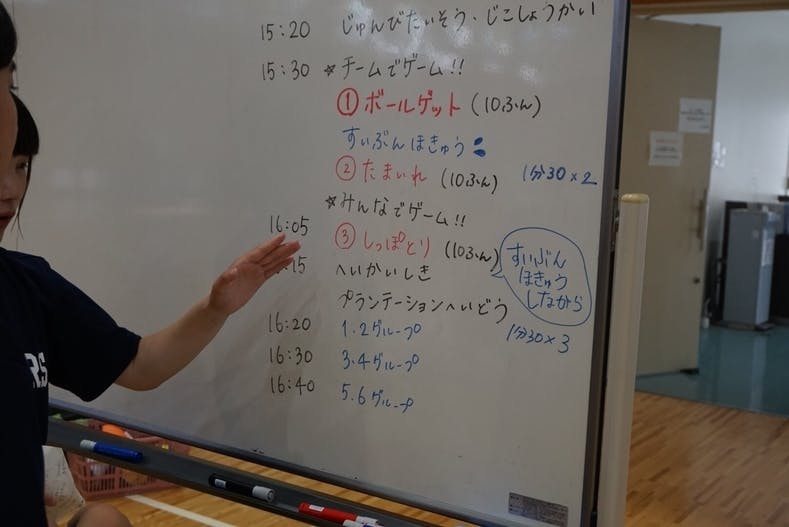 15:20 じゅんびたいそう・じこしょうかい
15:30 ☆チームでゲーム!!
① ボールゲット (10ぷん)
すいぶんほきゅう
② たまいれ (10ぷん) 1分30×2
☆みんなでゲーム!!
16:05 ③ しっぽとり (10ぷん)
すいぶん
ほきゅう
しながら
:15 へいかいしき
プランテーションへいどう
1分30×3
16:20 1.2グループ
16:30 3.4グループ
16:40 5.6グループ
RS